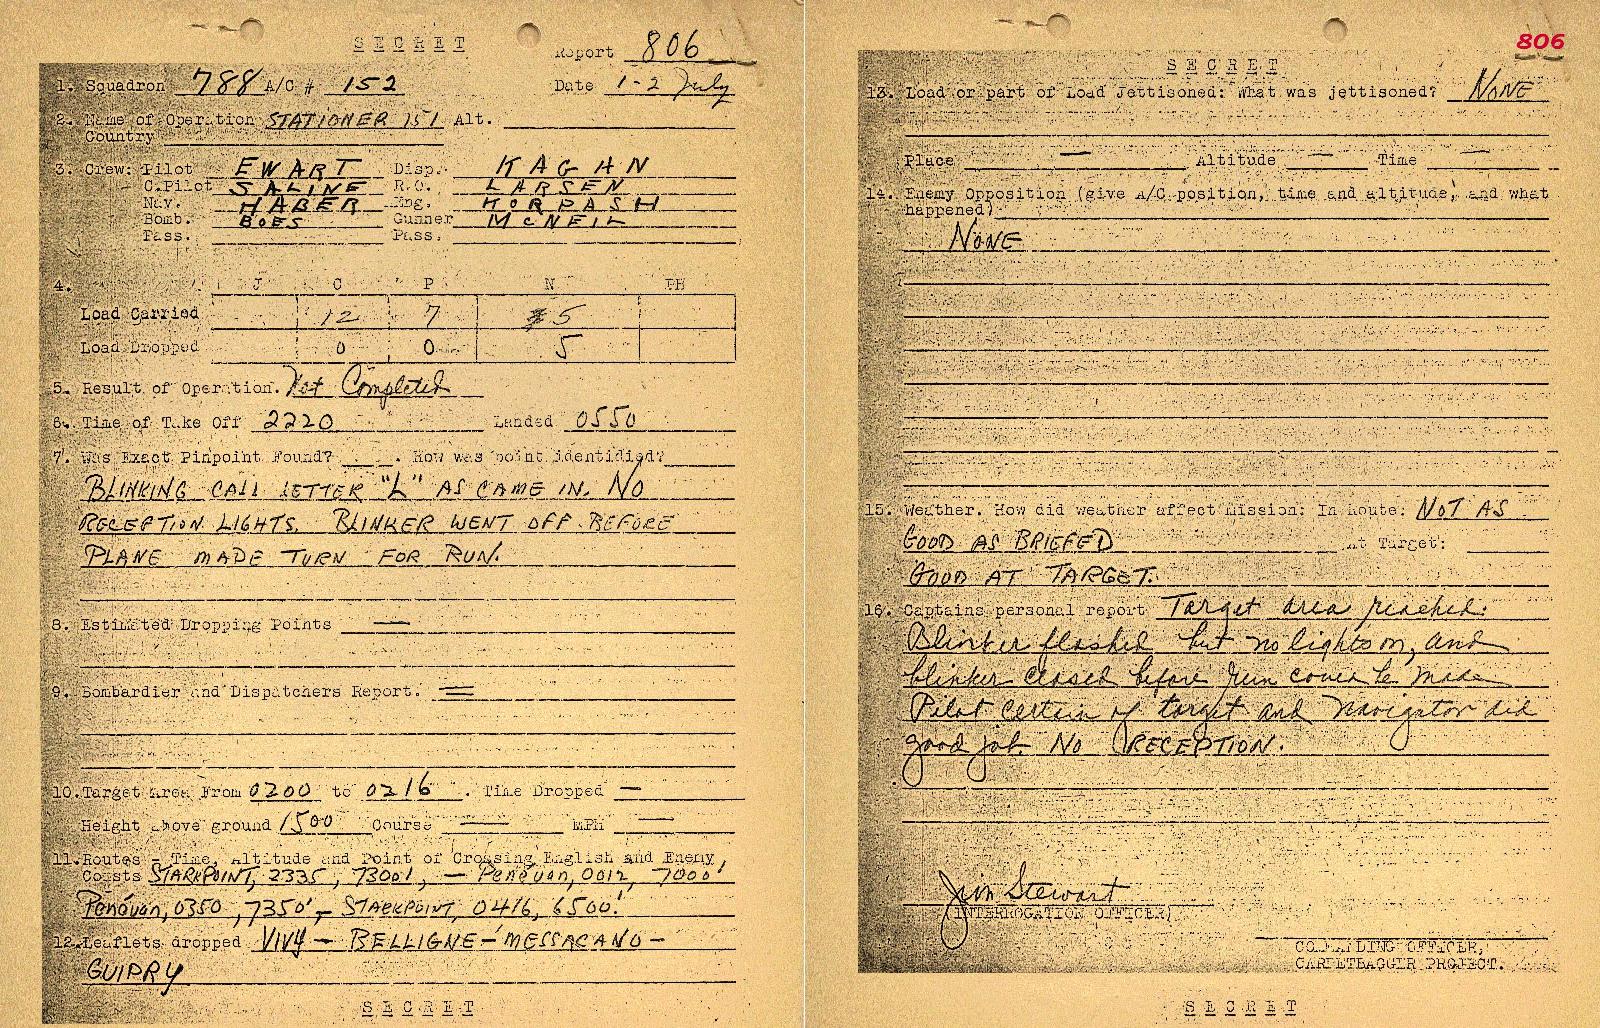 SECRET
Report 806
1. Squadron 788 A/C # 152 Date 1-2 July
2. Name of Operation STATIONER 151 Alt.
Country
3. Crew: Pilot EWART Disp. KAGHN
C.Pilot SALINE R.O. LARSEN
Nav. HABER Eng. KORPASH
Bomb. BOES Gunner McNEIL
Pass. Pass.
4. J C P N PH
Load Carried 12 7 5
Load Dropped 0 0 5
5. Result of Operation. Not Completed
6. Time of Take Off 2220 Landed 0550
7. Was Exact Pinpoint Found? . How was point identidied?
BLINKING CALL LETTER "L" AS CAME IN. NO
RECEPTION LIGHTS. BLINKER WENT OFF BEFORE
PLANE MADE TURN FOR RUN.
8. Estimated Dropping Points —
9. Bombardier and Dispatchers Report.
10. Target Area From 0200 to 0216 . Time Dropped —
Height above ground 1500 Course — MPH —
11. Routes - Time, Altitude and Point of Crossing English and Enemy
Coasts STARKPOINT, 2335, 7300', — Penévan, 0012, 7000'
Penévan, 0350, 7350' - STARKPOINT, 0416, 6500'.
12. Leaflets dropped VIVY — BELLIGNE — MESSACANO —
GUIPRY
SECRET
806
SECRET
13. Load or part of Load Jettisoned: What was jettisoned? NONE
Place — Altitude — Time —
14. Enemy Opposition (give A/C position, time and altitude, and what
happened)
NONE
15. Weather. How did weather affect Mission: In Route: NOT AS
GOOD AS BRIEFED At Target:
GOOD AT TARGET.
16. Captains personal report Target area reached.
Blinker flashed but no lights on, and
blinker closed before run could be made
Pilot certain of target and navigator did
good job. NO RECEPTION.
Jim Stewart
(INTERROGATION OFFICER)
COMMANDING OFFICER,
CARPETBAGGER PROJECT.
SECRET